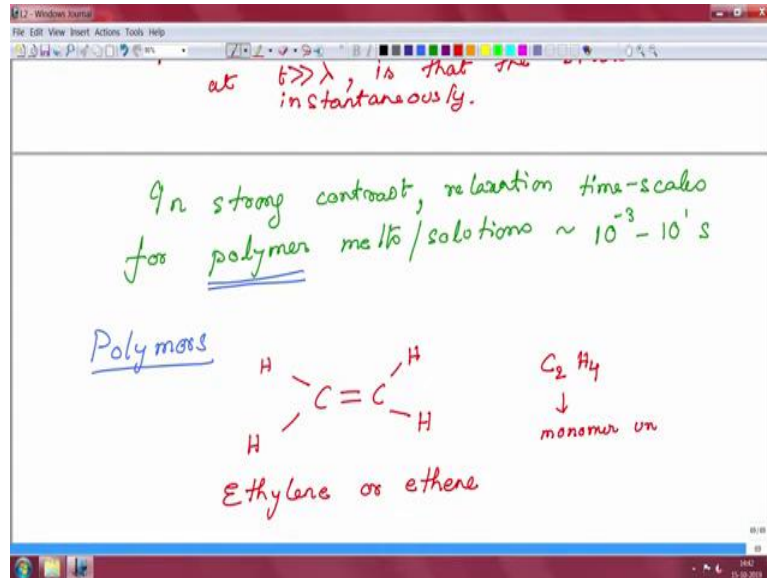 L2 - Windows Journal
File Edit View Insert Actions Tools Help
at t>>λ, is that the
instantaneously.
In strong contrast, relaxation time-scales
for polymer melts/solutions ~ 10⁻³ - 10¹ s
Polymers
H H
C = C
H H
C₂ H₄
↓
monomer un
Ethylene or ethene
69/69
69
14:42
15-10-2019